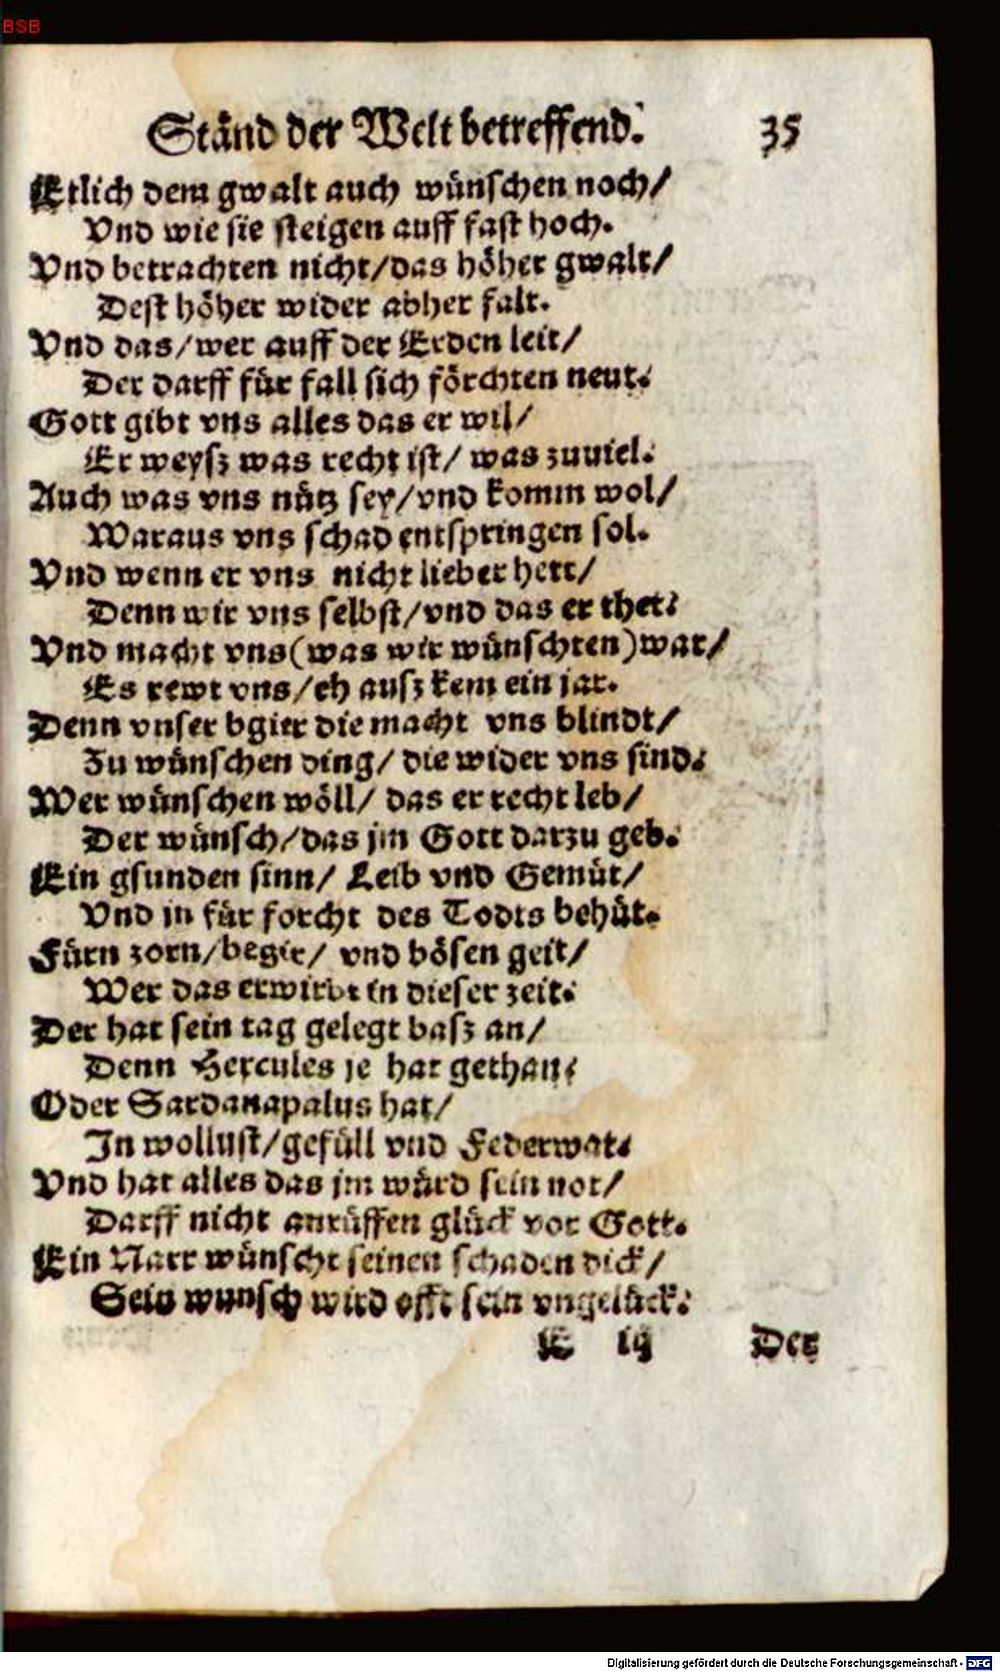 BSB
Ständ der Welt betreffend. 35
Etlich dem gwalt auch wünschen noch/
Vnd wie sie steigen auff fast hoch.
Vnd betrachten nicht/das höher gwalt/
Dest höher wider abher falt.
Vnd das/wer auff der Erden leit/
Der darff für fall sich förchten neut.
Gott gibt vns alles das er wil/
Er weysz was recht ist/ was zuuiel.
Auch was vns nütz sey/vnd komm wol/
Waraus vns schad entspringen sol.
Vnd wenn er vns nicht lieber hett/
Denn wir vns selbst/vnd das er thet.
Vnd macht vns(was wir wünschten)war/
Es rewt vns/eh ausz kem ein jar.
Denn vnser bgier die macht vns blindt/
Zu wünschen ding/ die wider vns sind.
Wer wünschen wöll/ das er recht leb/
Der wünsch/das jm Gott darzu geb.
Ein gsunden sinn/ Leib vnd Gemüt/
Vnd in für forcht des Todts behüt.
Fürn zorn/begir/ vnd bösen geit/
Wer das erwirbt in dieser zeit.
Der hat sein tag gelegt basz an/
Denn Hercules je hat gethan.
Oder Sardanapalus hat/
In wollust/gefüll vnd Federwat.
Vnd hat alles das jm würd sein not/
Darff nicht anrüffen glück vor Gott.
Ein Narr wünscht seinen schaden dick/
Sein wunsch wird offt sein vngelück.
E iij Der
Digitalisierung gefördert durch die Deutsche Forschungsgemeinschaft - DFG